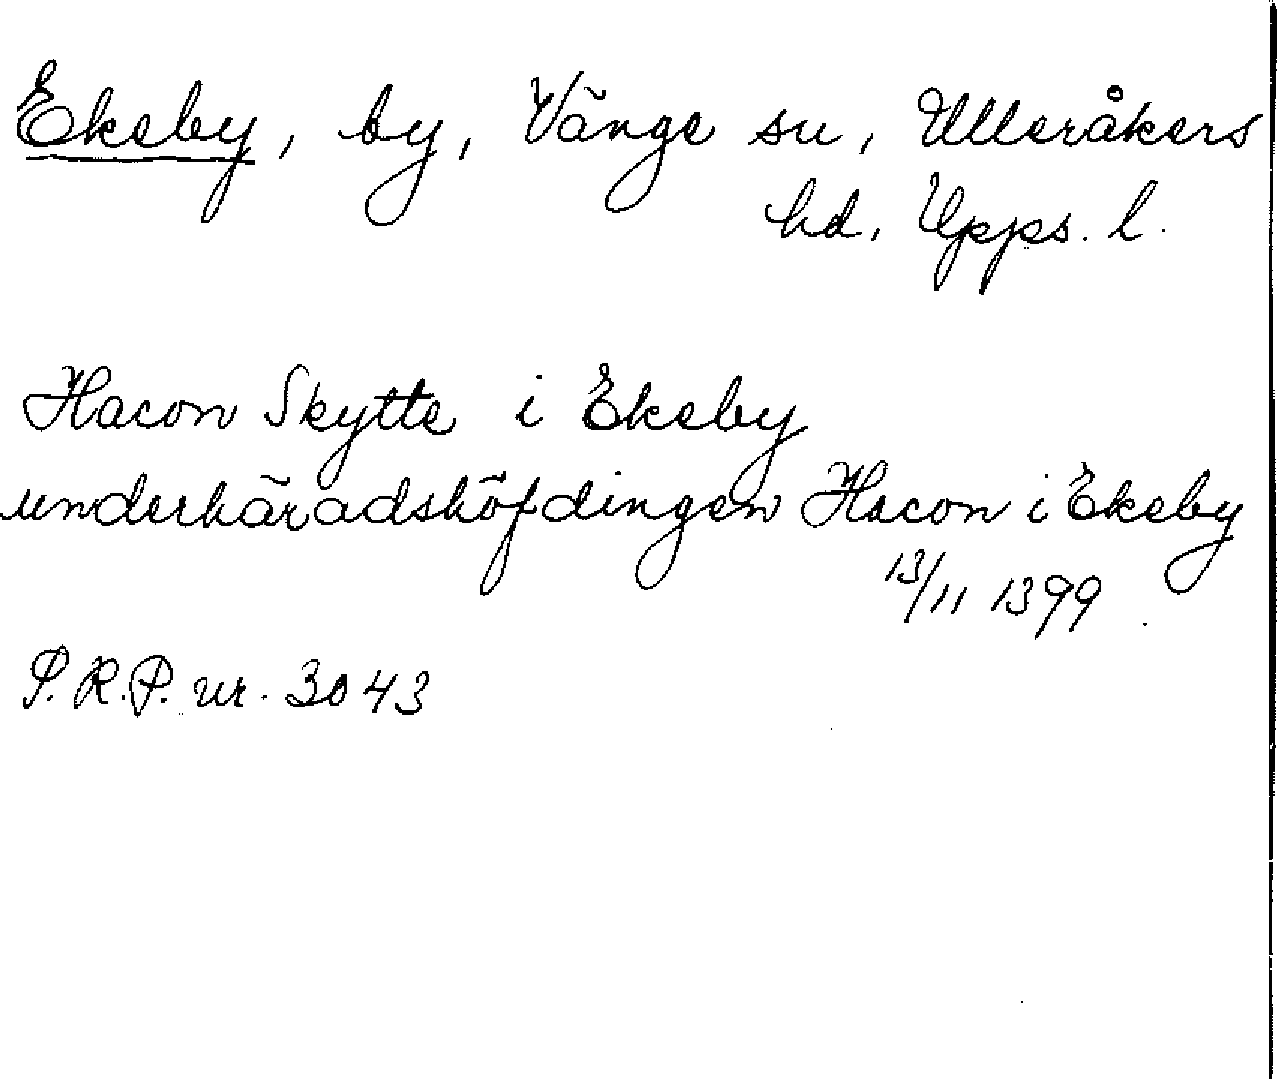 Ekeby, by, Vänge sn, Ulleråkers
hd, Upps. l.
Hacon Skytte i Ekeby
underhäradshöfdingen Hacon i Ekeby
13/11 1399
P.R.P. nr. 3043